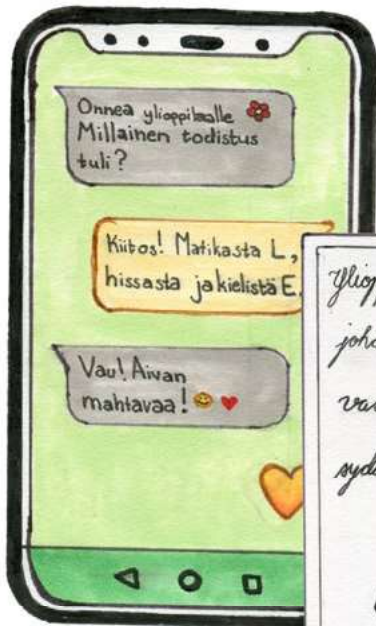 Onnea ylioppilaalle
Millainen todistus
tuli?
Kiitos! Matikasta L,
hissasta ja kielistä E.
Vau! Aivan
mahtavaa!